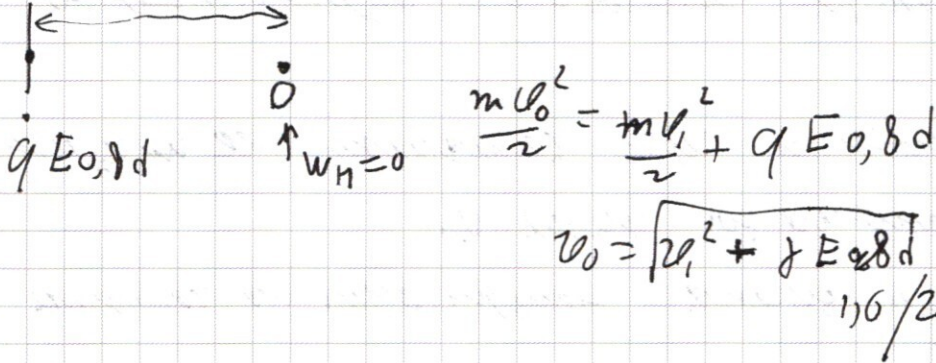 0
q E 0,8 d
W_п = 0
mv_0^2/2 = mv_1^2/2 + q E 0,8 d
v_0 = √(v_1^2 + γ E 0,8 d)
1,6 /2